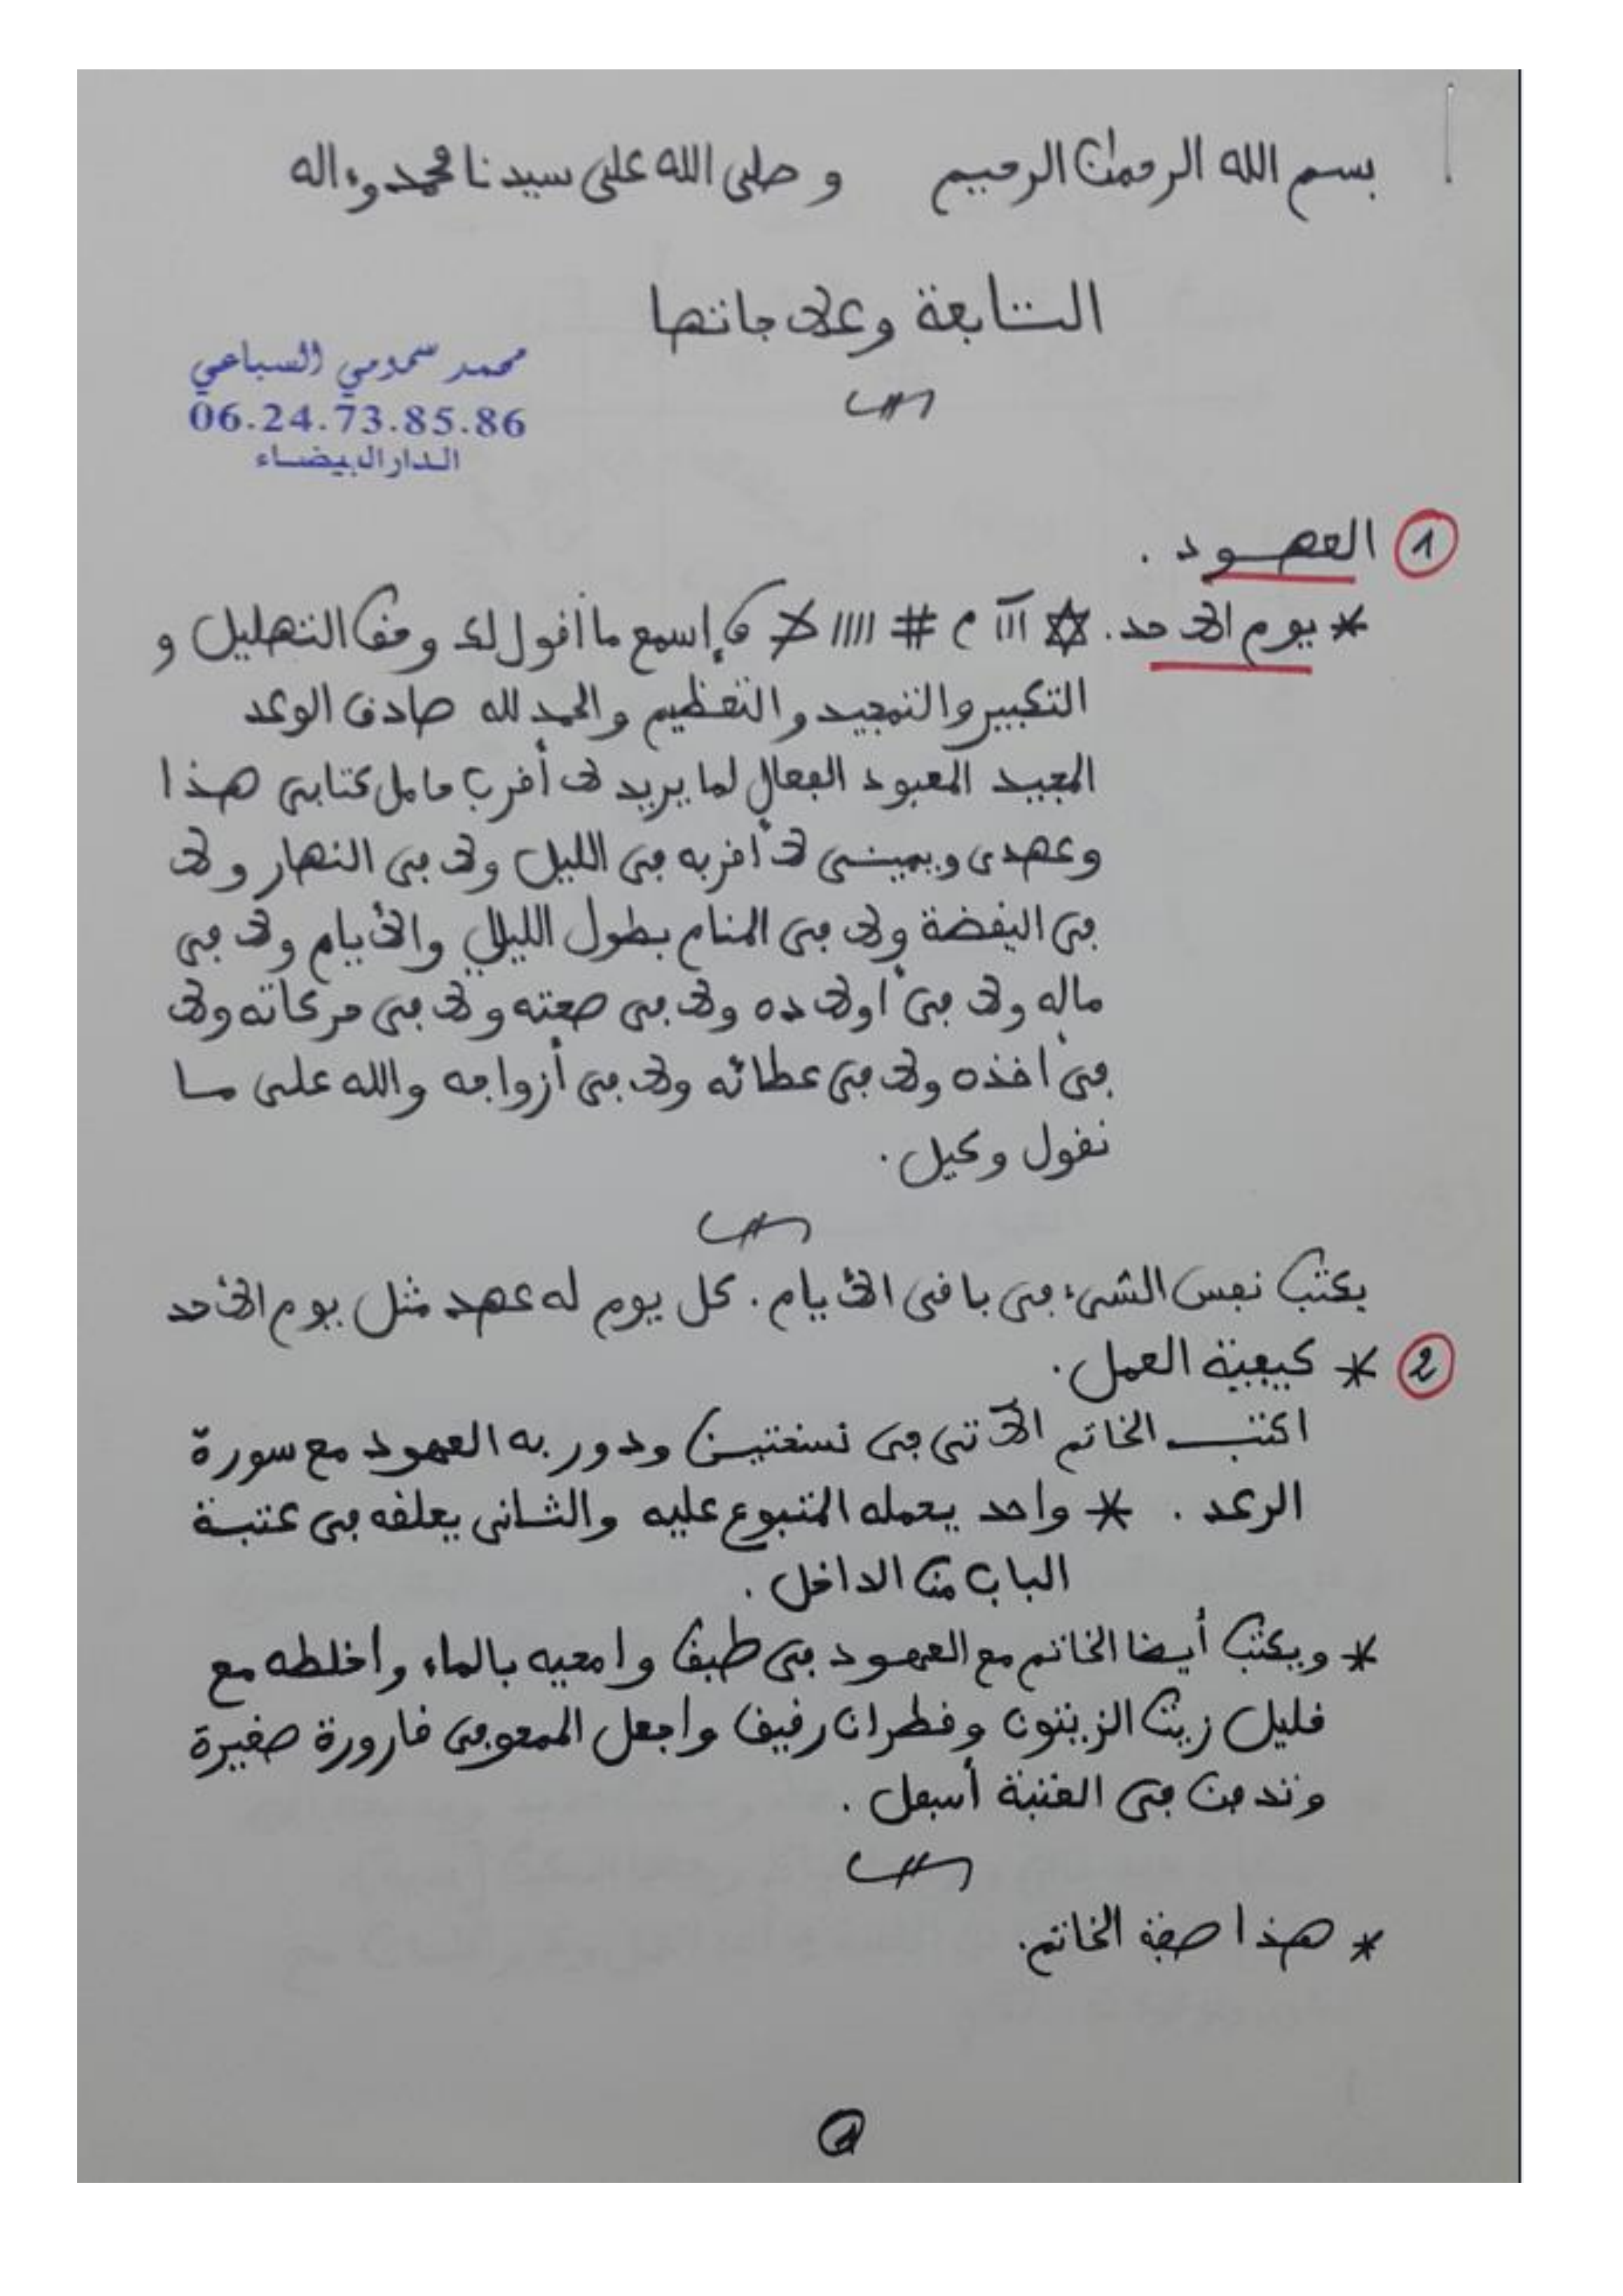 بسم الله الرحمان الرحيم وصلى الله على سيدنا محمد وءاله
التابعة وعلاجاتها
محمد سمومي السباعي
06.24.73.85.86
الدار البيضاء
1 العهود .
* يوم الأحد. ✡ ااا م # //// إسمع ما أقول لك وحق التهليل و
التكبير والتمجيد والتعظيم والحمد لله صادق الوعد
المجيد المعبود الفعال لما يريد لا أقرب حامل كتابي هذا
وعهدي ويميني لا أقربه في الليل ولا في النهار ولا
في اليقضة ولا في المنام بطول الليل والأيام ولا في
ماله ولا في أولاده ولا في صحته ولا في حركاته ولا
في أخذه ولا في عطائه ولا في أزواجه والله على ما
نقول وكيل .
يكتب نفس الشيء في باقي الأيام . كل يوم له عهد مثل يوم الأحد
2 * كيفية العمل .
اكتب الخاتم الآتي في نسختين ودور به العهود مع سورة
الرعد . * واحد يحمله المتبوع عليه والثاني يعلقه في عتبة
الباب من الداخل .
* ويكتب أيضا الخاتم مع العهود في طبق وامحيه بالماء واخلطه مع
قليل زيت الزيتون وقطران رقيق واجعل الممحو في قارورة صغيرة
وتدفن في العتبة أسفل .
* هذا صفة الخاتم.
1